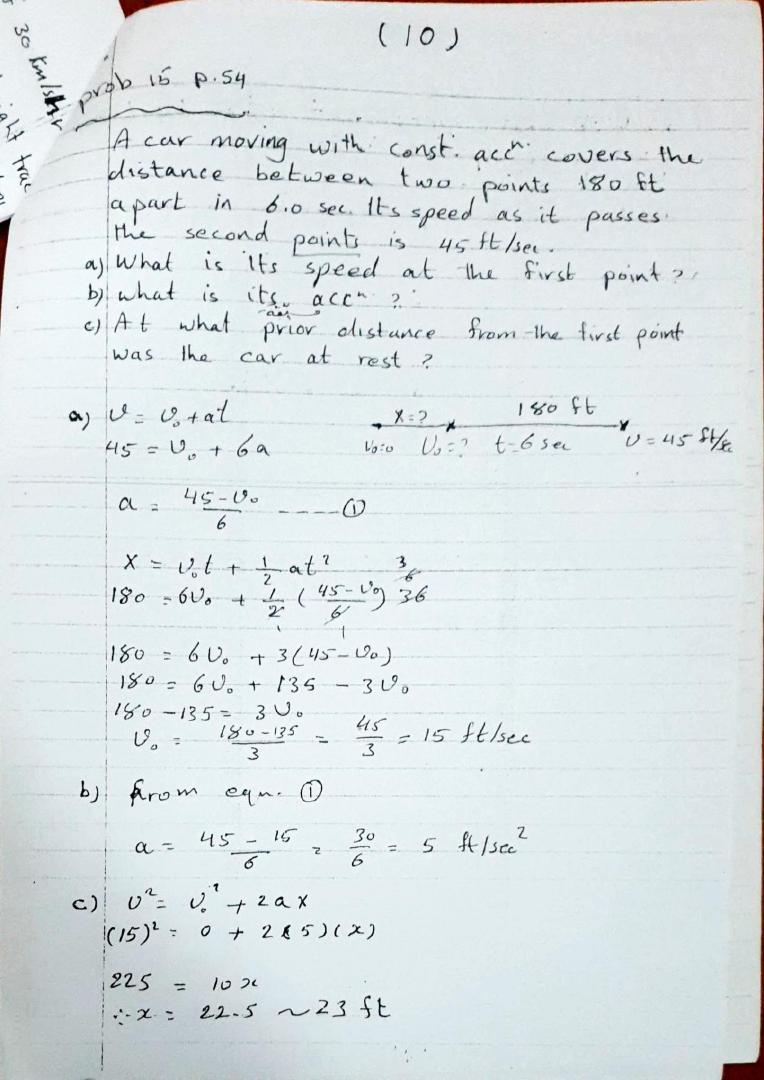 30 km/hr
(10)
prob 15 p.54
A car moving with const. accⁿ. covers the
distance between two points 180 ft
apart in 6.0 sec. Its speed as it passes
the second points is 45 ft/sec.
a) What is its speed at the first point?
b) what is its accⁿ ?
c) At what prior distance from the first point
was the car at rest ?
a) v = v₀ + at
x = ? 180 ft
45 = v₀ + 6a
v₀=0 v₀ = ? t = 6 sec v = 45 ft/sec
a = (45 - v₀)/6 ---- ①
x = v₀t + 1/2 at²
180 = 6v₀ + 1/2 ((45 - v₀)/6) 36
180 = 6v₀ + 3(45 - v₀)
180 = 6v₀ + 135 - 3v₀
180 - 135 = 3v₀
v₀ = (180 - 135)/3 = 45/3 = 15 ft/sec
b) from equn. ①
a = (45 - 15)/6 = 30/6 = 5 ft/sec²
c) v² = v₀² + 2ax
(15)² = 0 + 2(5)(x)
225 = 10x
∴ x = 22.5 ~ 23 ft